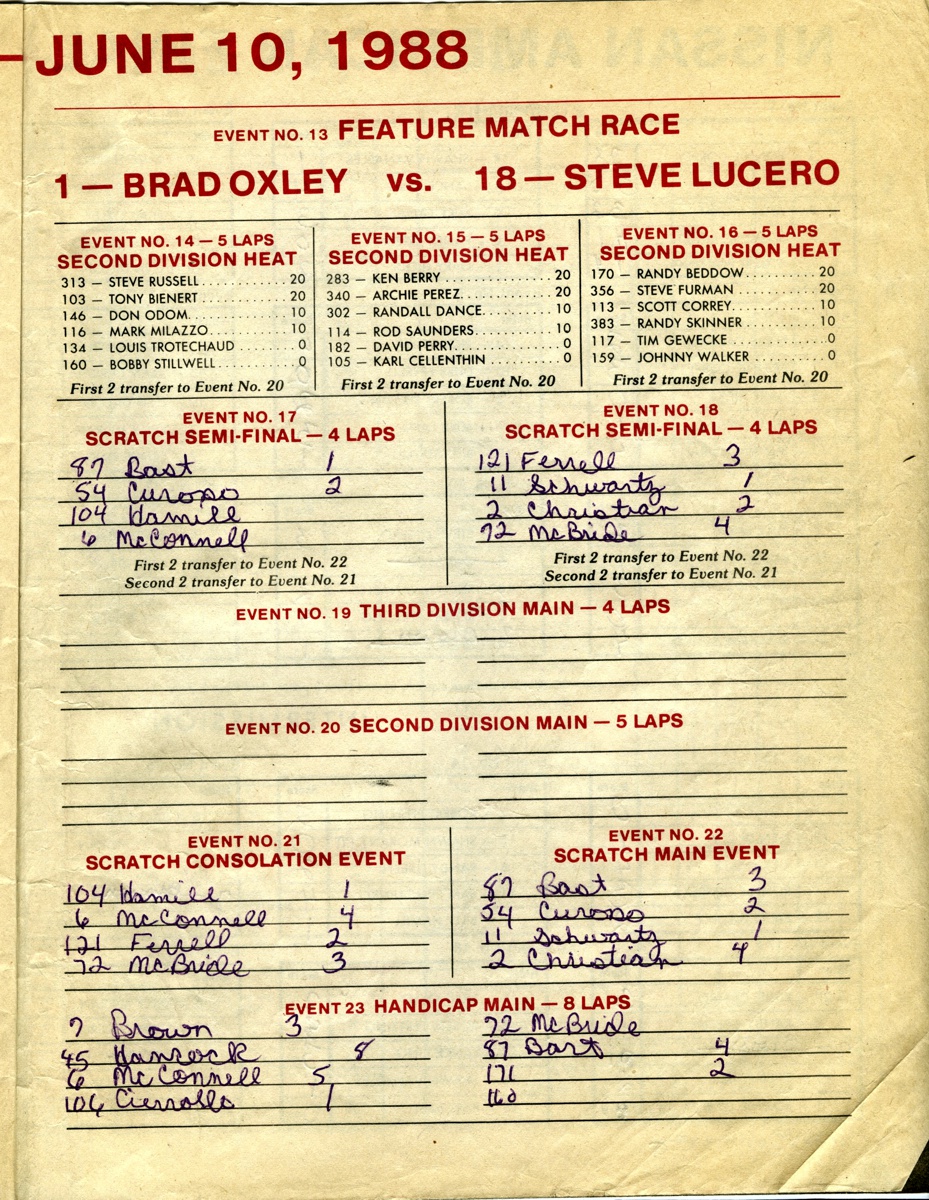 JUNE 10, 1988
EVENT NO. 13 FEATURE MATCH RACE
1 — BRAD OXLEY vs. 18 — STEVE LUCERO
EVENT NO. 14 — 5 LAPS
SECOND DIVISION HEAT
313 — STEVE RUSSELL . . . . . . . . . . . . 20
103 — TONY BIENERT . . . . . . . . . . . . 20
146 — DON ODOM. . . . . . . . . . . . . . 10
116 — MARK MILAZZO. . . . . . . . . . . 10
134 — LOUIS TROTECHAUD . . . . . . . . 0
160 — BOBBY STILLWELL . . . . . . . . . . 0
First 2 transfer to Event No. 20
EVENT NO. 15 — 5 LAPS
SECOND DIVISION HEAT
283 — KEN BERRY . . . . . . . . . . . . . . 20
340 — ARCHIE PEREZ. . . . . . . . . . . . 20
302 — RANDALL DANCE. . . . . . . . . . 10
114 — ROD SAUNDERS. . . . . . . . . . . 10
182 — DAVID PERRY. . . . . . . . . . . . . 0
105 — KARL CELLENTHIN . . . . . . . . . . 0
First 2 transfer to Event No. 20
EVENT NO. 16 — 5 LAPS
SECOND DIVISION HEAT
170 — RANDY BEDDOW. . . . . . . . . . 20
356 — STEVE FURMAN . . . . . . . . . . . 20
113 — SCOTT CORREY. . . . . . . . . . . . 10
383 — RANDY SKINNER . . . . . . . . . . 10
117 — TIM GEWECKE . . . . . . . . . . . . 0
159 — JOHNNY WALKER . . . . . . . . . . 0
First 2 transfer to Event No. 20
EVENT NO. 17
SCRATCH SEMI-FINAL — 4 LAPS
87 Bast 1
54 Curoso 2
104 Hamill
6 McConnell
First 2 transfer to Event No. 22
Second 2 transfer to Event No. 21
EVENT NO. 18
SCRATCH SEMI-FINAL — 4 LAPS
121 Ferrell 3
11 Schwartz 1
2 Christian 2
72 McBride 4
First 2 transfer to Event No. 22
Second 2 transfer to Event No. 21
EVENT NO. 19 THIRD DIVISION MAIN — 4 LAPS
EVENT NO. 20 SECOND DIVISION MAIN — 5 LAPS
EVENT NO. 21
SCRATCH CONSOLATION EVENT
104 Hamill 1
6 McConnell 4
121 Ferrell 2
72 McBride 3
EVENT NO. 22
SCRATCH MAIN EVENT
87 Bast 3
54 Curoso 2
11 Schwartz 1
2 Christian 4
EVENT 23 HANDICAP MAIN — 8 LAPS
7 Brown 3
45 Hancock 8
6 McConnell 5
106 1
72 McBride
87 Bast 4
171 2
160